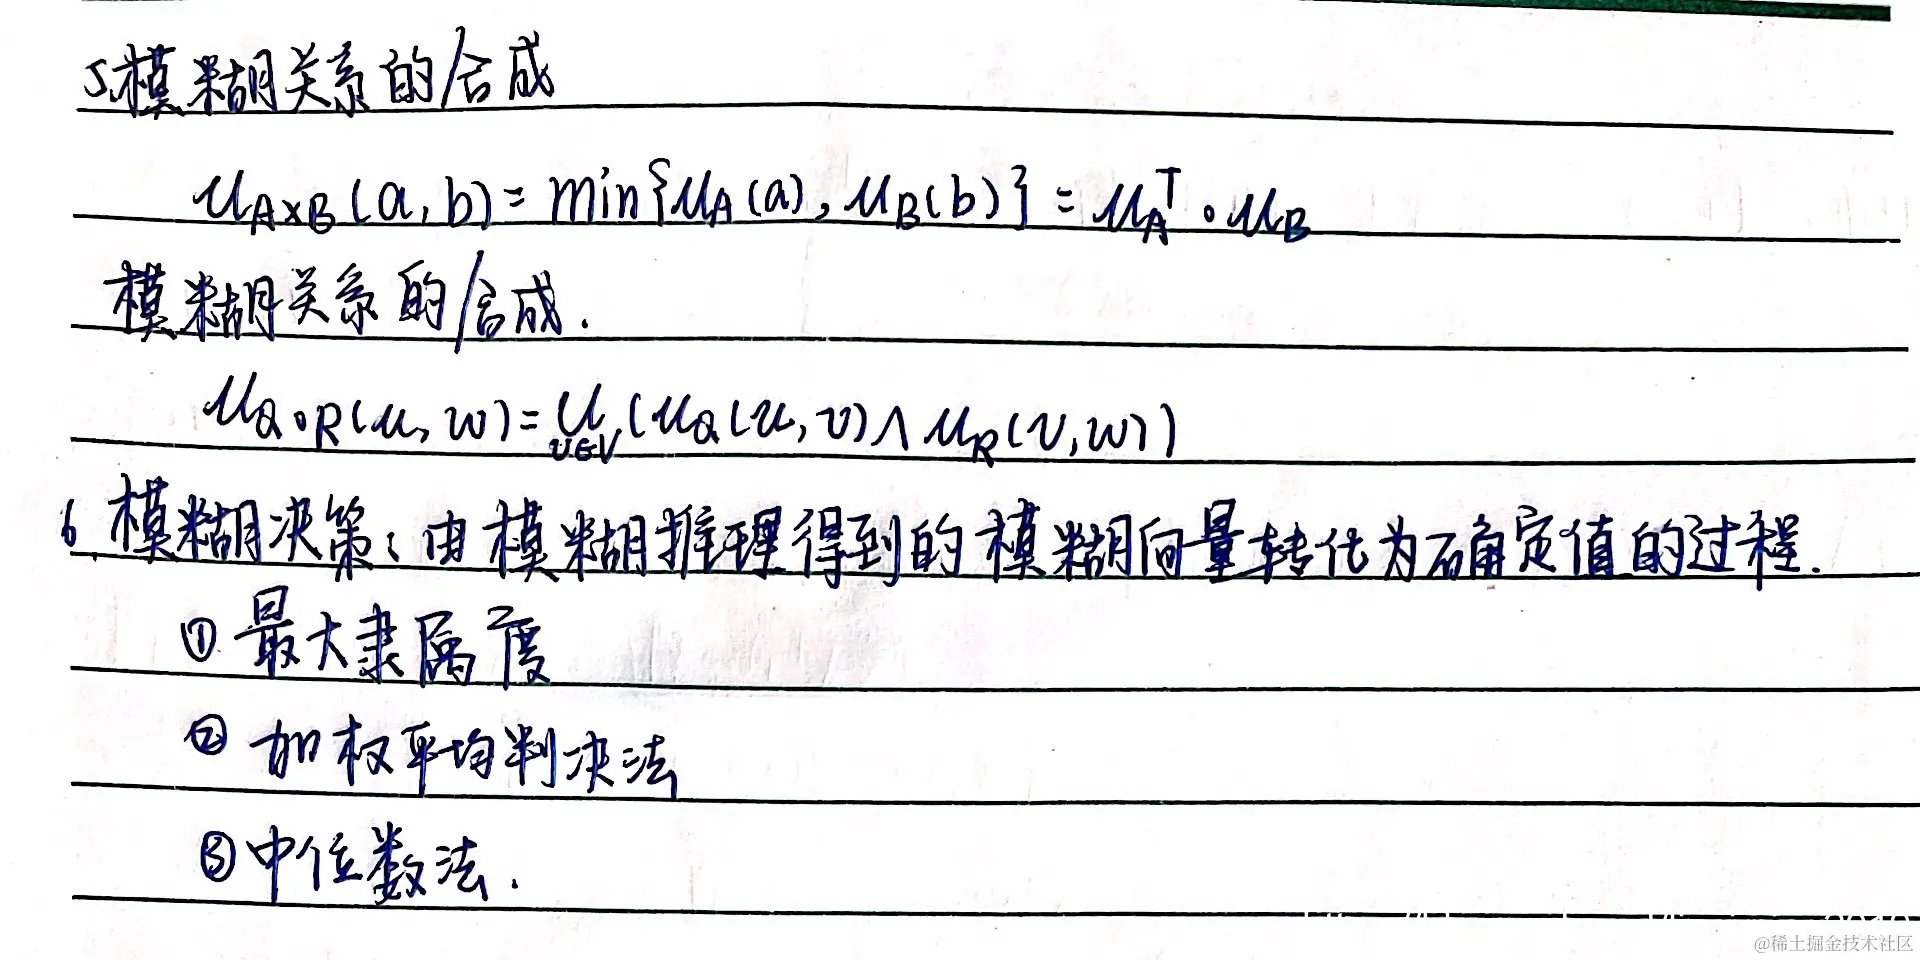 5.模糊关系的合成
μ_{A×B}(a,b)=min{μ_A(a),μ_B(b)}=μ_A^T∘μ_B
模糊关系的合成.
μ_{Q∘R}(u,w)=∪_{v∈V}(μ_Q(u,v)∧μ_R(v,w))
6.模糊决策:由模糊推理得到的模糊向量转化为确定值的过程.
①最大隶属度
②加权平均判决法
③中位数法.
@稀土掘金技术社区